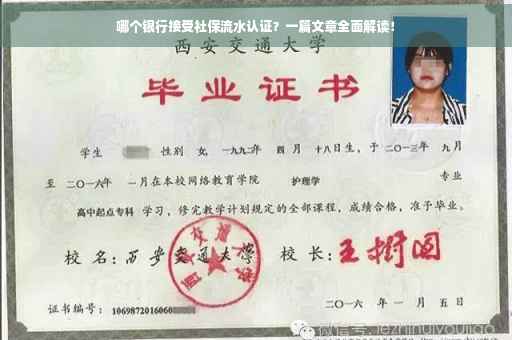 哪个银行接受社保流水认证？一篇文章全面解读！
西安交通大学
毕业证书
学生 性别 女，一九九二年 四 月 十八日生，于 二〇一三年 九月
至 二〇一六年 一月在本校网络教育学院 护理学 专业
高中起点专科 学习，修完教学计划规定的全部课程，成绩合格，准予毕业。
校 名：西安交通大学 校 长：王树国
证书编号： 1069872016060
二〇一六 年 一 月 五 日
微信号: jezhinuiyoujiao